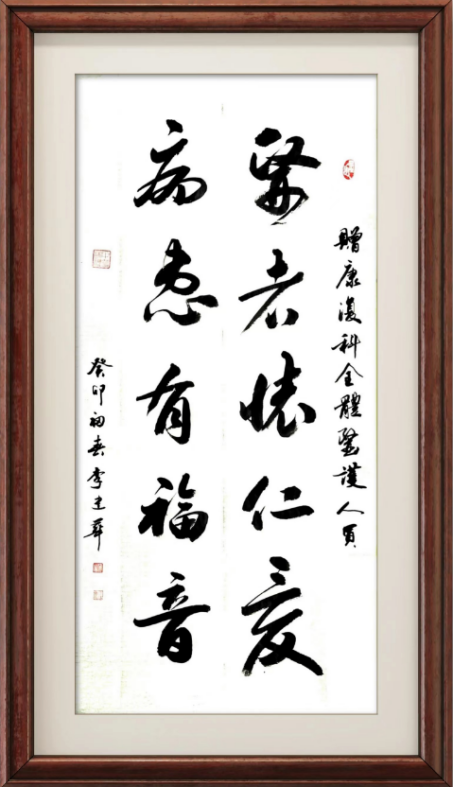 贈康復科全體醫護人員
醫者懷仁愛
病患有福音
癸卯初春李建華